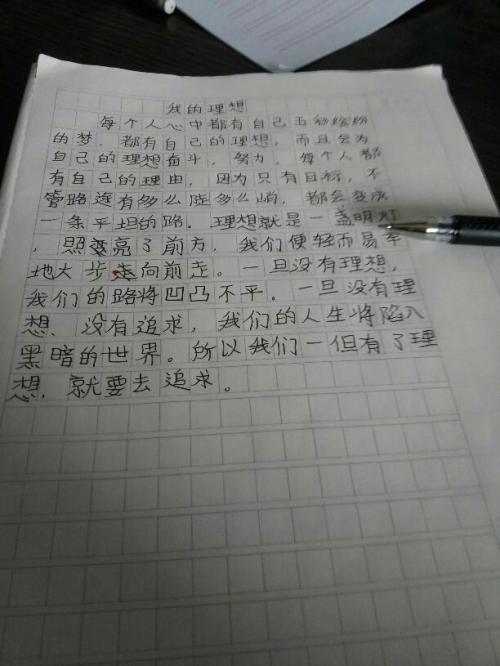 我的理想
每个人心中都有自己五彩缤纷
的梦，都有自己的理想，而且会为
自己的理想奋斗，努力。每个人都
有自己的理由，因为只有目标，不
管路途有多么陡多么峭，都会变成
一条平坦的路。理想就是一盏明灯
，照亮了前方，我们便轻而易举
地大步走向前走。一旦没有理想，
我们的路将凹凸不平。一旦没有理
想，没有追求，我们的人生将陷入
黑暗的世界。所以我们一但有了理
想，就要去追求。